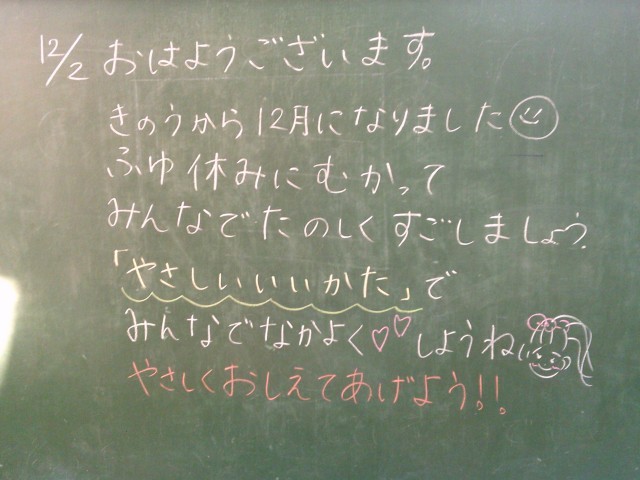 12/2 おはようございます。
きのうから12月になりました
ふゆ休みにむかって
みんなでたのしくすごしましょう。
「やさしいいいかた」で
みんなでなかよく♡♡しようね
やさしくおしえてあげよう!!